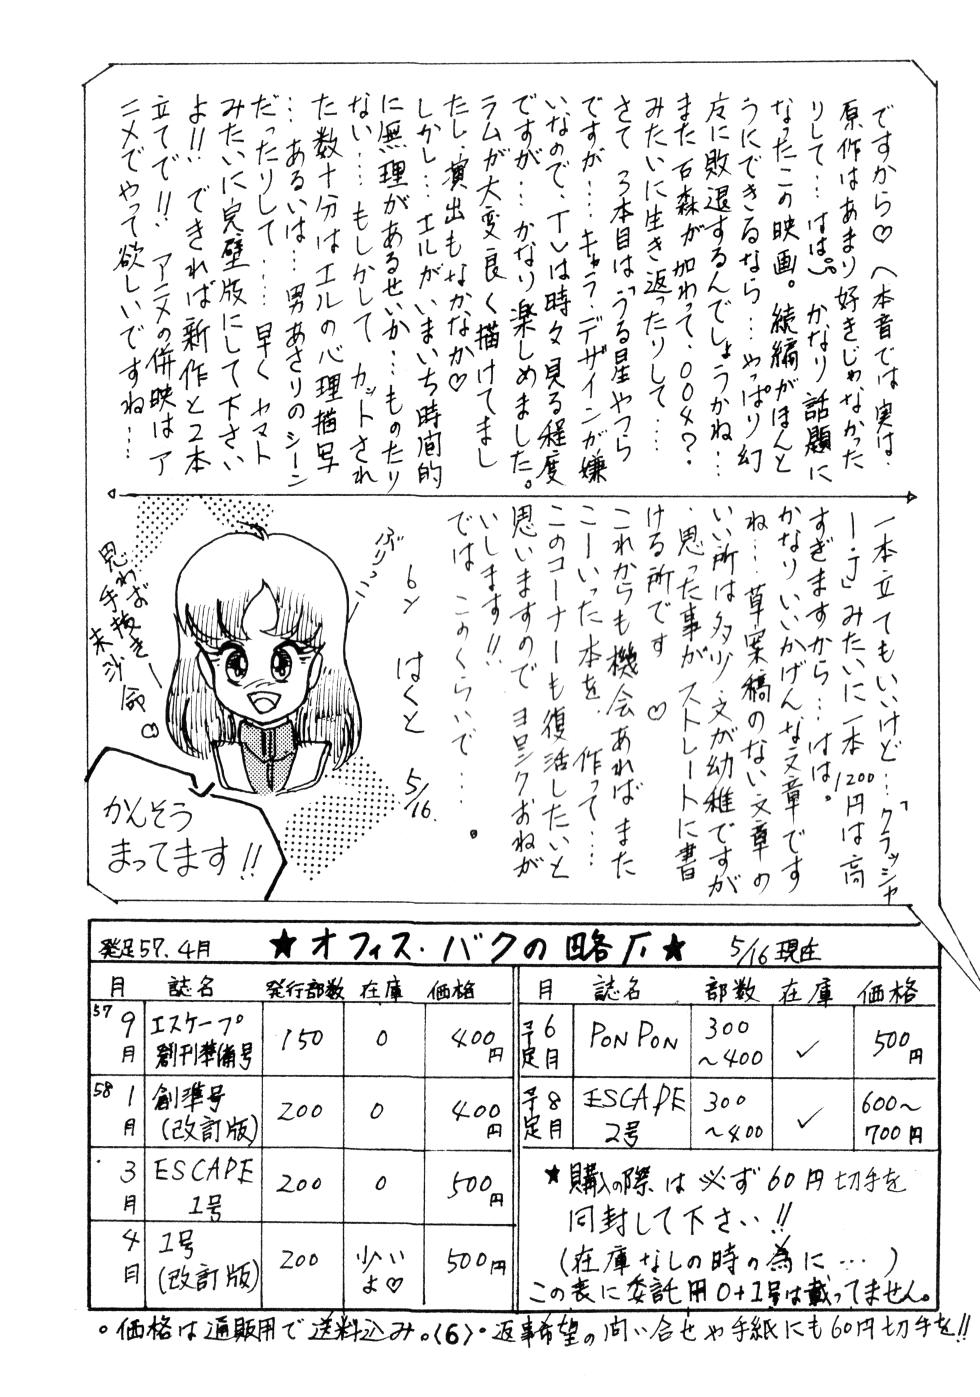 ですから♡ へ本音では実は、
原作はあまり好きじゃなかった
りして… はは。かなり話題に
なったこの映画。続編がほんと
うにできるなら… やっぱり幻
友に敗退するんでしょうかね…
また石森が加わって、004?
みたいに生き返ったりして…
さて 3本目は「うる星やつら
ですが… キャラ・デザインが嫌
いなので、TVは時々見る程度
ですが… かなり楽しめました。
ラムが大変良く描けてまし
たし、演出もなかなか♡
しかし… エルがいまいち時間的
に無理があるせいか… ものたり
ない… もしかして カットされ
た数十分はエルの心理描写
… あるいは… 男あさりのシーン
だったりして…… 早く ヤマト
みたいに完璧版にして下さい
よ!! できれば新作と2本
立てで!! アニメの併映はア
ニメでやって欲しいですね…
一本立てもいいけど…「クラッシャ
ー・J」みたいに一本1200円は高
すぎますから… はは。
かなりいいかげんな文章です
ね… 草案稿のない文章の
いい所は多少、文が幼稚ですが
、思った事がストレートに書
ける所です ♡
これからも機会あれば また
こーいった本を、作って…
このコーナーも復活したいと
思いますので ヨロシクおねが
いします!!
では このくらいで…。
ぶりっこ
by はくと 5/16.
思わず
手抜きー
未沙命♡
かんそう
まってます!!
発足57.4月 ★オフィス・バクの略歴★ 5/16現在
月 誌名 発行部数 在庫 価格
57 9月 エスケープ創刊準備号 150 0 400円
58 1月 創準号(改訂版) 200 0 400円
3月 ESCAPE 1号 200 0 500円
4月 1号(改訂版) 200 少いよ♡ 500円
月 誌名 部数 在庫 価格
予定 6月 PONPON 300〜400 ✓ 500円
予定 8月 ESCAPE 2号 300〜400 ✓ 600〜700円
★購入の際は必ず60円切手を
同封して下さい!!
(在庫なしの時の為に…)
この表に委託用0+1号は載ってません。
。価格は通販用で送料込み。(6)・返事希望の問い合せや手紙にも60円切手を!!